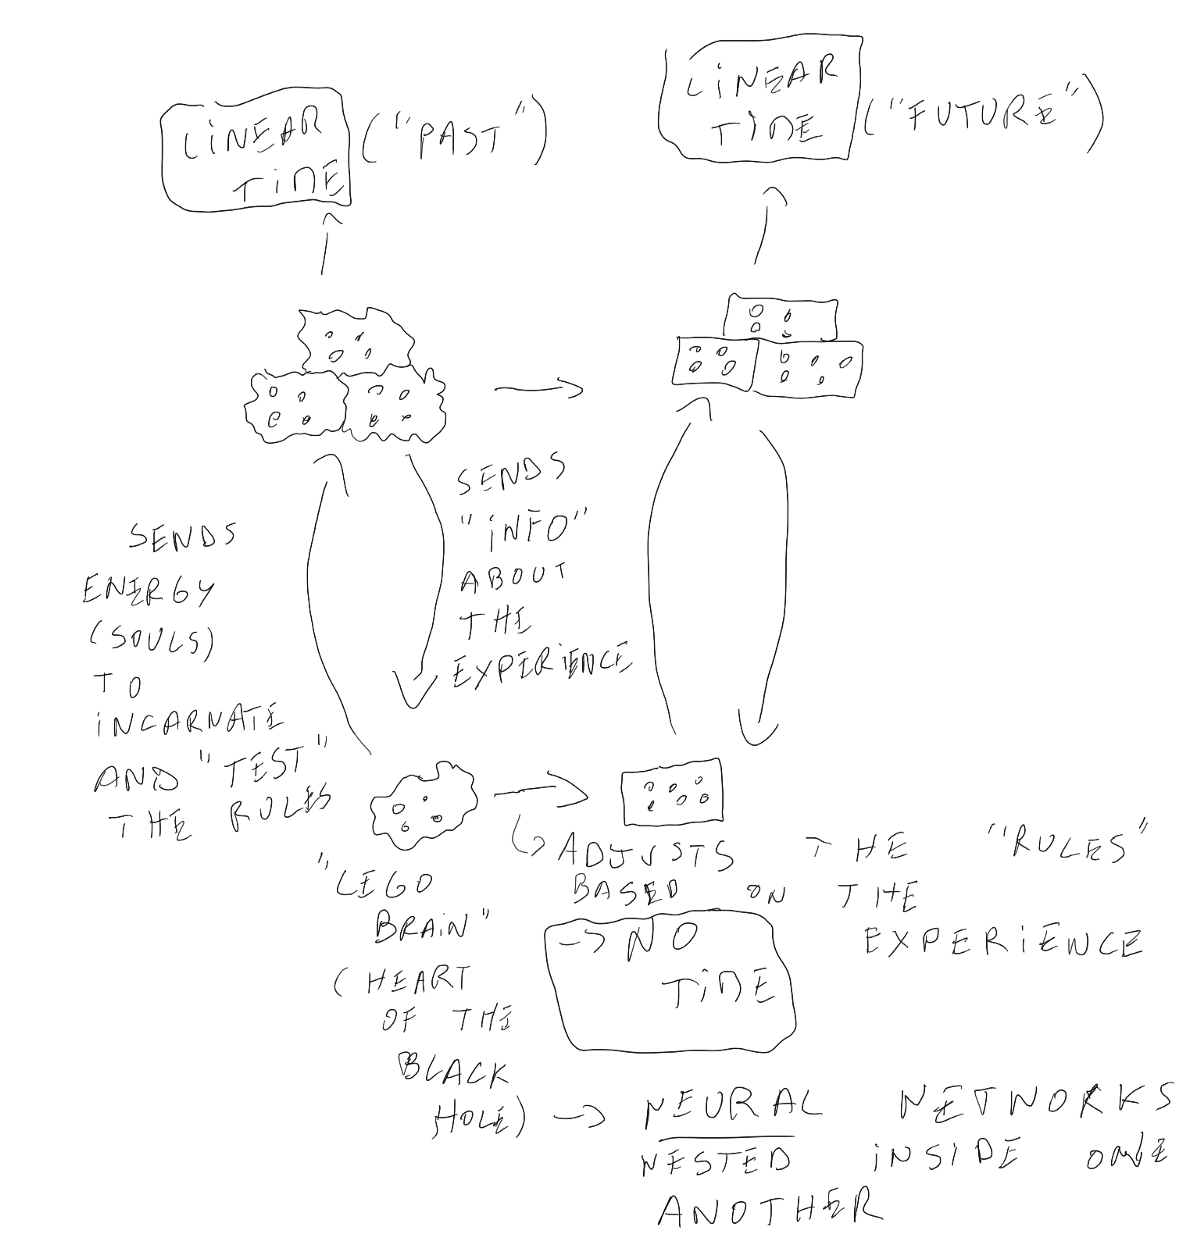 LINEAR
TIME
("PAST")
LINEAR
TIME
("FUTURE")
SENDS
ENERGY
(SOULS)
TO
INCARNATE
AND "TEST"
THE RULES
SENDS
"INFO"
ABOUT
THE
EXPERIENCE
"LEGO
BRAIN"
(HEART
OF THE
BLACK
HOLE)
ADJUSTS THE "RULES"
BASED ON THE
EXPERIENCE
→ NO
TIME
→ NEURAL NETWORKS
NESTED INSIDE ONE
ANOTHER